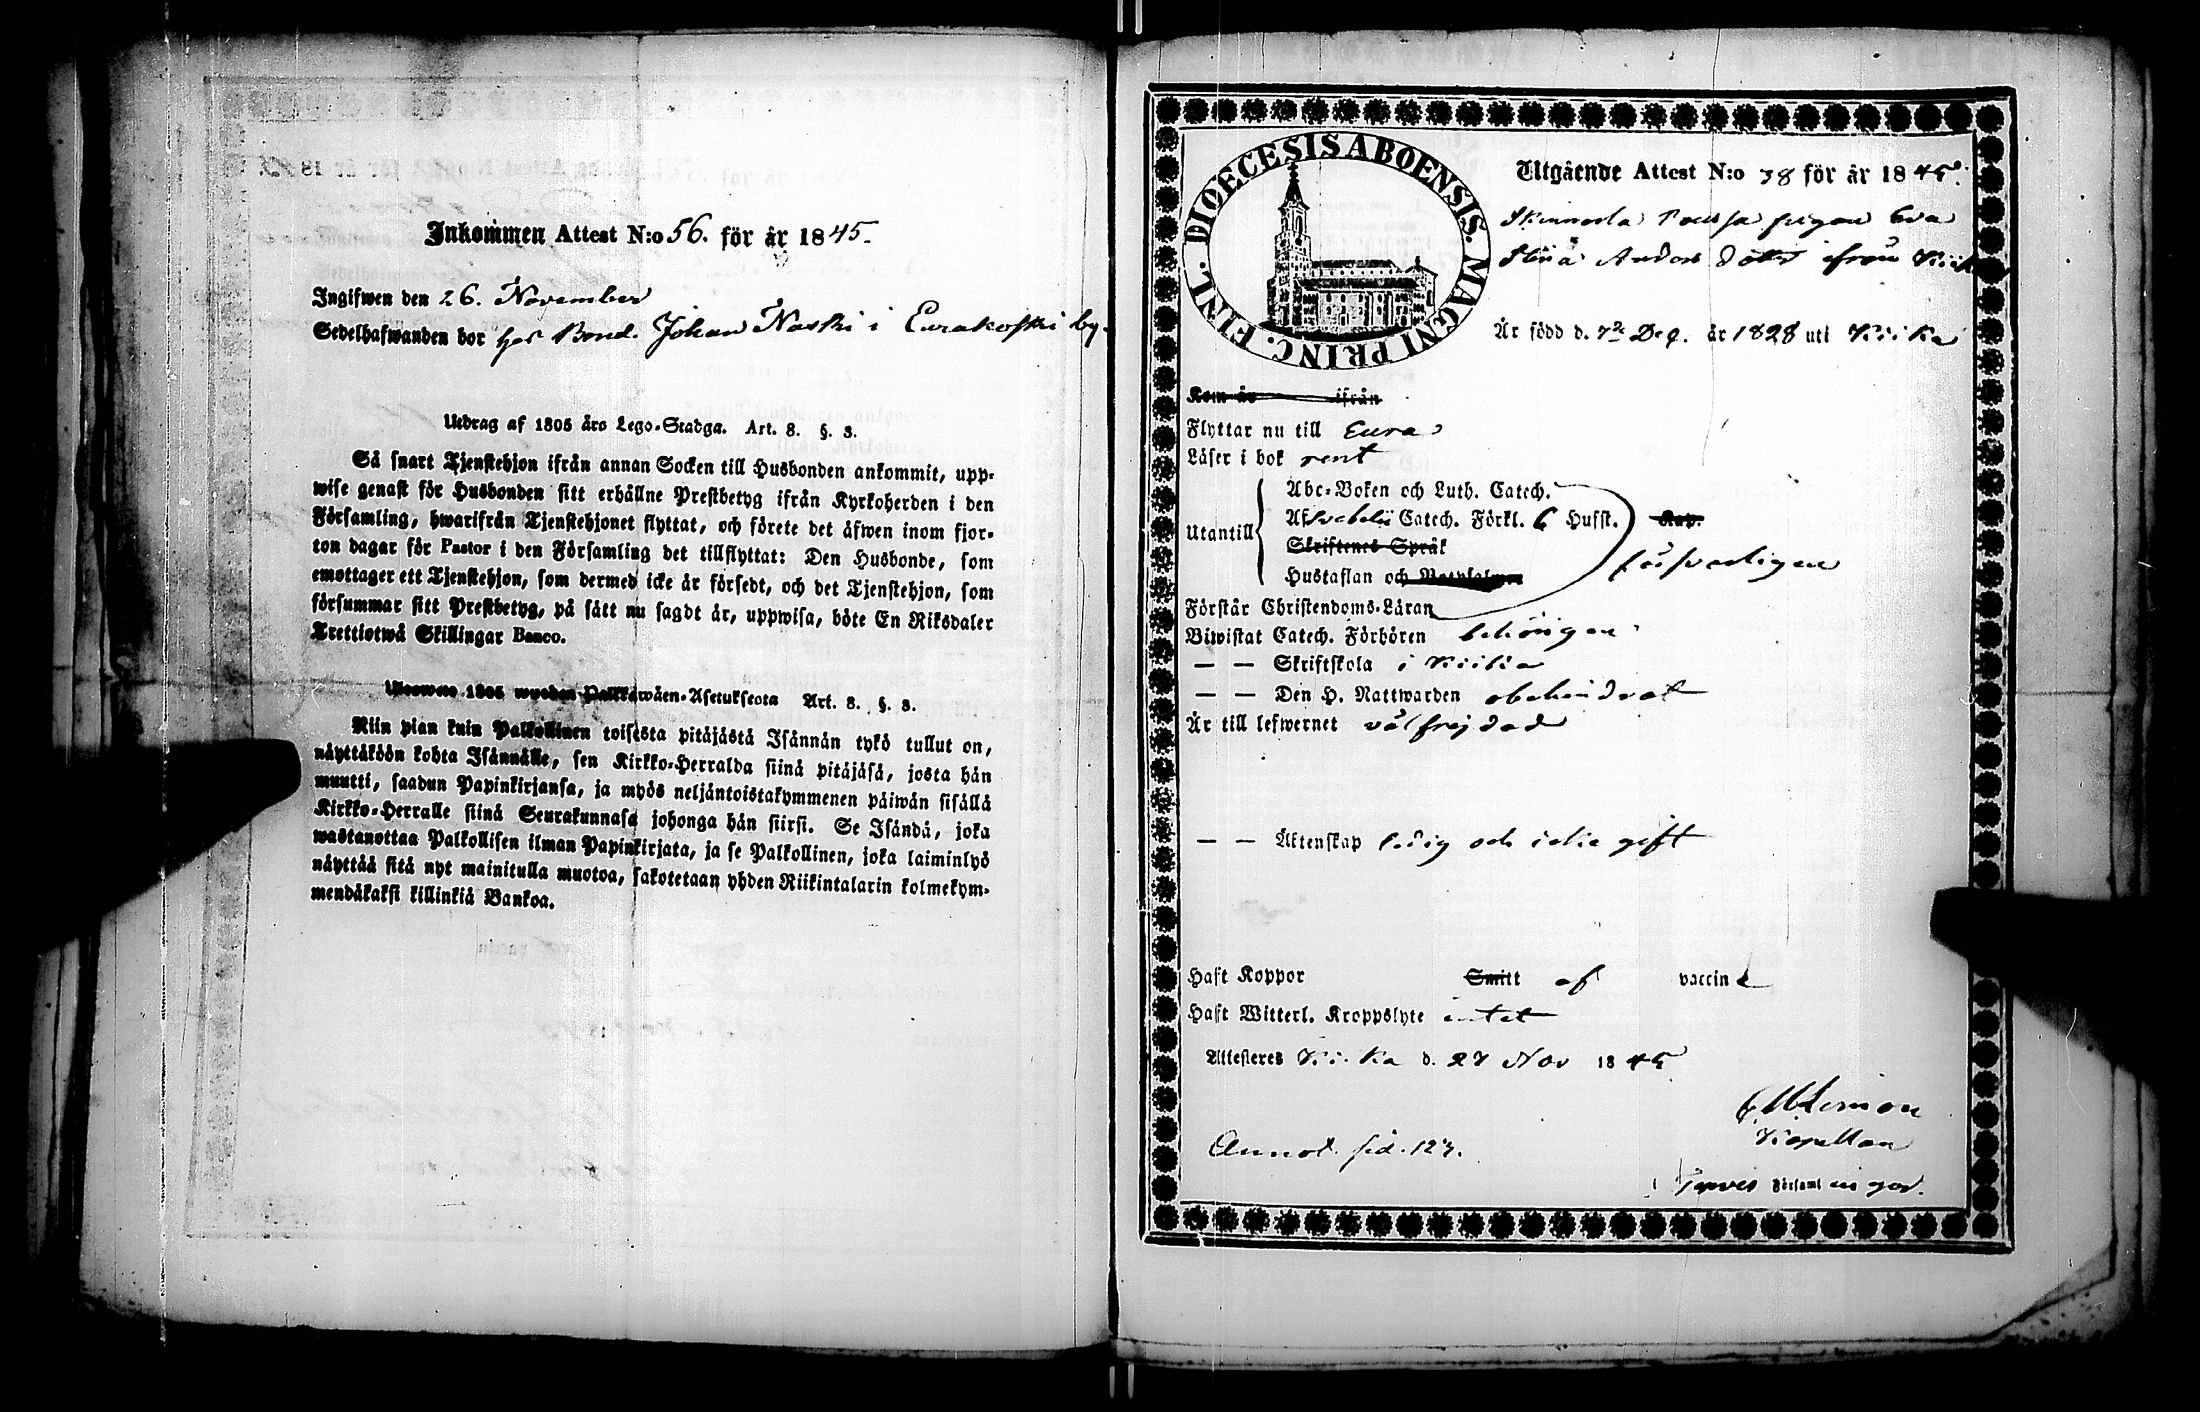 Inkommen Attest N:o 56. för år 1845.
Ingifwen den 26. November
Sedelhafwanden bor hos Bond. Johan Naski i Eurakoski by.
Utdrag af 1805 års Lego-Stadga. Art. 8. §. 3.
Så snart Tjenstehjon ifrån annan Socken till Husbonden ankommit, upp-
wise genast för Husbonden sitt erhållne Prestbetyg ifrån Kyrkoherden i den
Församling, hwarifrån Tjenstehjonet flyttat, och förete det äfwen inom fjor-
ton dagar för Pastor i den Församling det tillflyttat: Den Husbonde, som
emottager ett Tjenstehjon, som dermed icke är försedt, och det Tjenstehjon, som
försummar sitt Prestbetyg, på sätt nu sagdt är, uppwisa, böte En Riksdaler
Trettiotwå Skillingar Banco.
1805 wuoden Palkkawäen-Asetuksesta Art. 8. §. 3.
Niin pian kuin Palkollinen toisesta pitäjästä Isännän tykö tullut on,
näyttäköön kohta Isännälle, sen Kirkko-Herralda siinä pitäjäsä, josta hän
muutti, saadun Papinkirjansa, ja myös neljäntoistakymmenen päiwän sisällä
Kirkko-Herralle siinä Seurakunnasa johonga hän siirsi. Se Isändä, joka
wastanottaa Palkollisen ilman Papinkirjata, ja se Palkollinen, joka laiminlyö
näyttää sitä nyt mainitulla muotoa, sakotetaan yhden Riikintalarin kolmekym-
mendäkaksi killinkiä Bankoa.
DIOECESIS ABOENSIS. MAGNI PRINC. FINL.
Utgående Attest N:o 38 för år 1845.
pigan Eva
Stina Anders dotter ifrån
Är född d. 7de Dec. år 1828 uti Kiika
Kom år ifrån
Flyttar nu till Eura
Läser i bok rent
Utantill
Abc-Boken och Luth. Catech.
Af Svebelii Catech. Förkl. 6 Hufst. Kap.
Skriftenes Språk
Hustaflan och
försvarligen
Förstår Christendoms-Läran
Biwistat Catech. Förhören behörigen
— — Skriftskola i Kiikka
— — Den H. Nattwarden obehindrat
Är till lefwernet välfrejdad
— — Äktenskap ledig och icke gift
Haft Koppor Smitt af vaccin
Haft Witterl. Kroppslyte intet
Attesteres Kiika d. 27 Nov 1845
Kapellan
Annot. sid. 123.
Församl